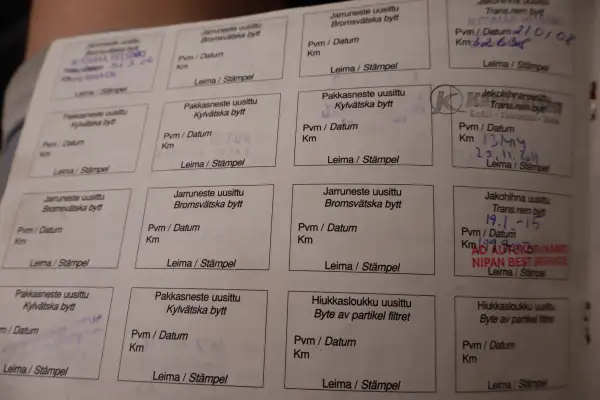 Jarruneste uusittu
Bromsvätska bytt
Pvm / Datum
Km
Leima / Stämpel
Jarruneste uusittu
Bromsvätska bytt
Pvm / Datum
Km
Leima / Stämpel
Jarruneste uusittu
Bromsvätska bytt
Pvm / Datum
Km
Leima / Stämpel
Trans.rem bytt
Pvm / Datum
Km
Leima / Stämpel
Pakkasneste uusittu
Kylvätska bytt
Pvm / Datum
Km
Leima / Stämpel
Pakkasneste uusittu
Kylvätska bytt
Pvm / Datum
Km
Leima / Stämpel
Pakkasneste uusittu
Kylvätska bytt
Pvm / Datum
Km
Leima / Stämpel
Jakohihna uusittu
Trans.rem bytt
Pvm / Datum
Km
Leima / Stämpel
Jarruneste uusittu
Bromsvätska bytt
Pvm / Datum
Km
Leima / Stämpel
Jarruneste uusittu
Bromsvätska bytt
Pvm / Datum
Km
Leima / Stämpel
Jarruneste uusittu
Bromsvätska bytt
Pvm / Datum
Km
Leima / Stämpel
Jakohihna uusittu
Trans.rem bytt
19.1.-15
Pvm / Datum
Km
NIPAN BEST
Leima / Stämpel
Pakkasneste uusittu
Kylvätska bytt
m / Datum
Leima / Stämpel
Pakkasneste uusittu
Kylvätska bytt
Pvm / Datum
Km
Leima / Stämpel
Hiukkasloukku uusittu
Byte av partikel filtret
Pvm / Datum
Km
Leima / Stämpel
Hiukkasloukku uusittu
Byte av partikel filtret
Pvm / Datum
Km
Leima / Stämpel